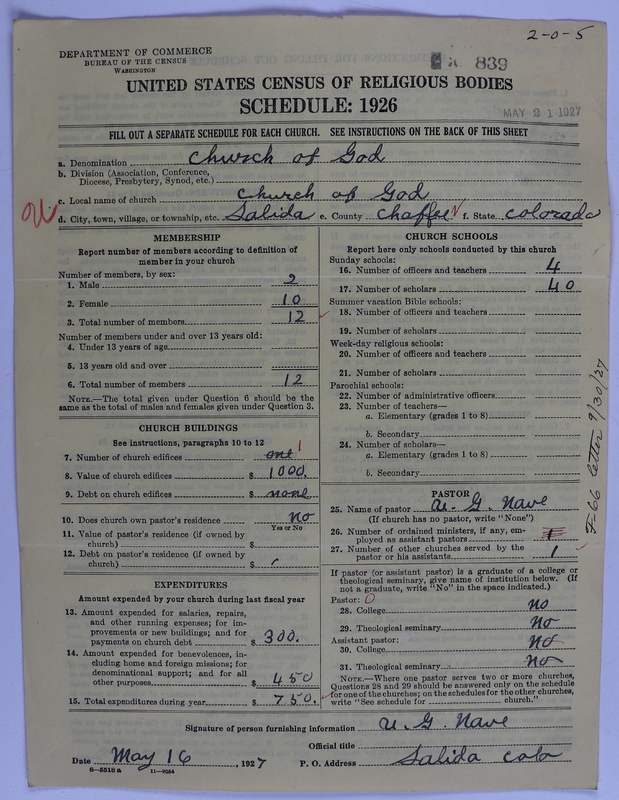 2-0-5
DEPARTMENT OF COMMERCE
BUREAU OF THE CENSUS
WASHINGTON
A 839
UNITED STATES CENSUS OF RELIGIOUS BODIES
SCHEDULE: 1926
MAY 21 1927
FILL OUT A SEPARATE SCHEDULE FOR EACH CHURCH. SEE INSTRUCTIONS ON THE BACK OF THIS SHEET
a. Denomination Church of God
b. Division (Association, Conference,
Diocese, Presbytery, Synod, etc.)
c. Local name of church Church of God
d. City, town, village, or township, etc. Salida e. County Chaffee f. State Colorado
MEMBERSHIP
Report number of members according to definition of
member in your church
Number of members, by sex:
1. Male 2
2. Female 10
3. Total number of members 12
Number of members under and over 13 years old:
4. Under 13 years of age
5. 13 years old and over
6. Total number of members 12
NOTE.—The total given under Question 6 should be the
same as the total of males and females given under Question 3.
CHURCH BUILDINGS
See instructions, paragraphs 10 to 12
7. Number of church edifices one 1
8. Value of church edifices $ 1000.
9. Debt on church edifices $ none
10. Does church own pastor's residence no
Yes or No
11. Value of pastor's residence (if owned by
church) $
12. Debt on pastor's residence (if owned by
church) $
EXPENDITURES
Amount expended by your church during last fiscal year
13. Amount expended for salaries, repairs,
and other running expenses; for im-
provements or new buildings; and for
payments on church debt $ 300.
14. Amount expended for benevolences, in-
cluding home and foreign missions; for
denominational support; and for all
other purposes $ 450
15. Total expenditures during year $ 750.
CHURCH SCHOOLS
Report here only schools conducted by this church
Sunday schools:
16. Number of officers and teachers 4
17. Number of scholars 40
Summer vacation Bible schools:
18. Number of officers and teachers
19. Number of scholars
Week-day religious schools:
20. Number of officers and teachers
21. Number of scholars
Parochial schools:
22. Number of administrative officers
23. Number of teachers—
a. Elementary (grades 1 to 8)
b. Secondary
24. Number of scholars—
a. Elementary (grades 1 to 8)
b. Secondary
PASTOR
25. Name of pastor U. G. Nave
(If church has no pastor, write "None")
26. Number of ordained ministers, if any, em-
ployed as assistant pastors 1
27. Number of other churches served by the
pastor or his assistants 1
If pastor (or assistant pastor) is a graduate of a college or
theological seminary, give name of institution below. (If
not a graduate, write "No" in the space indicated.)
Pastor: 0
28. College No
29. Theological seminary No
Assistant pastor:
30. College No
31. Theological seminary No
NOTE.—Where one pastor serves two or more churches,
Questions 28 and 29 should be answered only on the schedule
for one of the churches; on the schedules for the other churches,
write "See schedule for church."
F-66 letter 9/30/27
Signature of person furnishing information U. G. Nave
Official title
Date May 16, 1927 P. O. Address Salida Colo
8-5518a 11-9054